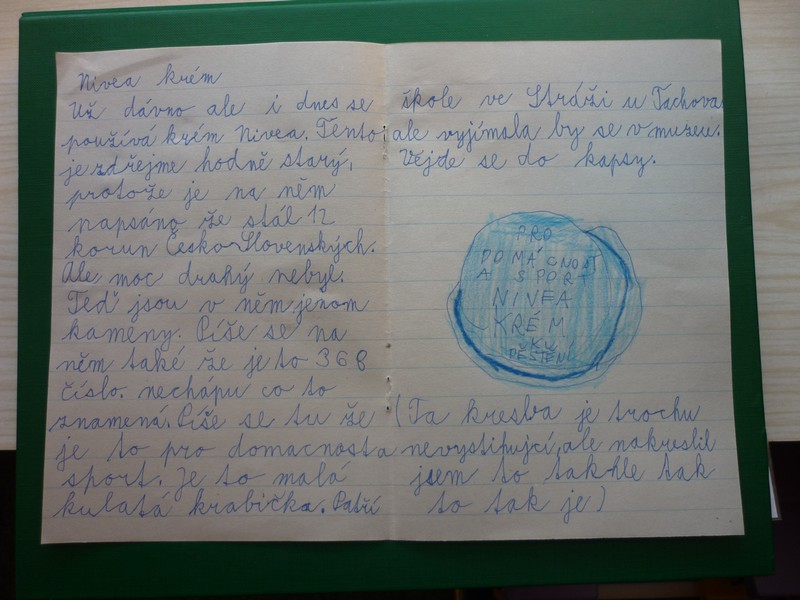 Nivea krém
Už dávno ale i dnes se
používá krém Nivea. Tento
je zdřejme hodně starý,
protože je na něm
napsáno že stál 12
korun Česko-Slovenských.
Ale moc drahý nebyl.
Teď jsou v něm jenom
kameny. Píše se na
něm také že je to 368
číslo. nechápu co to
znamená. Píše se tu že
je to pro domacnost a
sport. Je to malá
kulatá krabička. Patří
škole ve Stráži u Tachova
ale vyjímala by se v muzeu.
Vejde se do kapsy.
PRO
DOMÁCNOST
A SPORT
NIVEA
KRÉM
KU
PĚŠTĚNÍ
(Ta kresba je trochu
nevystihujcí, ale nakreslil
jsem to takhle tak
to tak je)